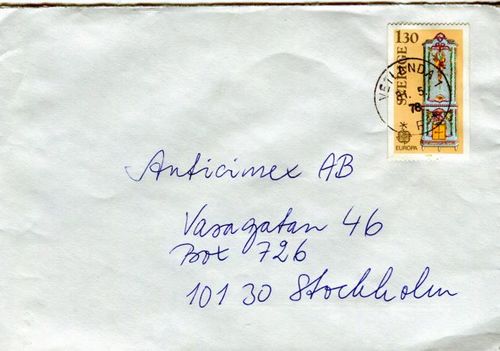 130
SVERIGE
VETLANDA 1
5
76
EUROPA
Anticimex AB
Vasagatan 46
Box 726
101 30 Stockholm